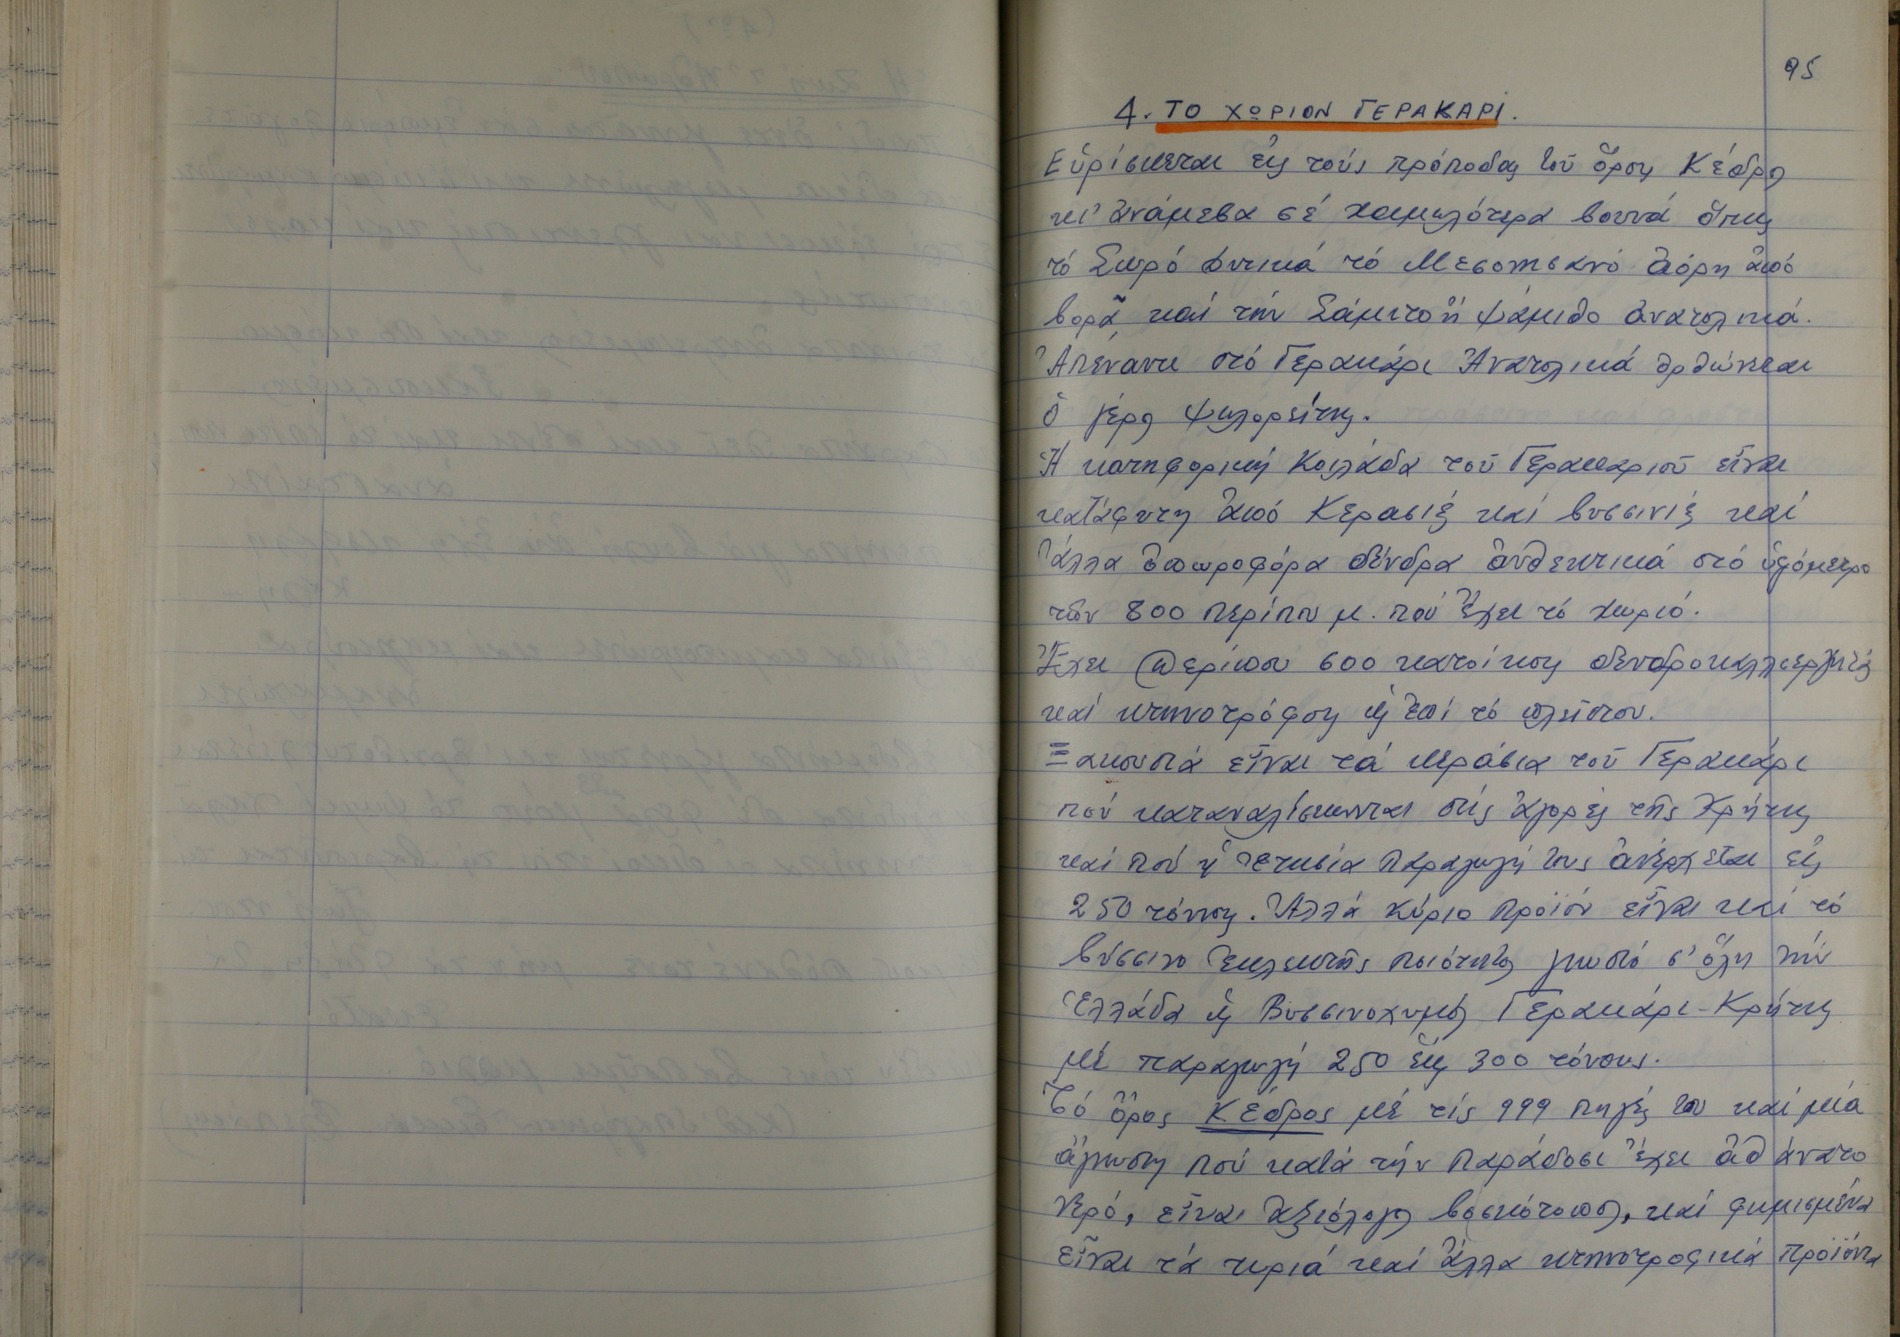 95
4. ΤΟ ΧΩΡΙΟΝ ΓΕΡΑΚΑΡΙ.
Εὑρίσκεται εἰς τούς πρόποδας τοῦ ὄρους Κέδρου
κι' ἀνάμεσα σέ χαμηλότερα βουνά ὅπως
τό Σωρό δυτικά τό Μεσοπισανό ἀόρη ἀπό
βορᾶ καί τήν Σάμιτο ἤ Ψάμιθο ἀνατολικά.
Ἀπέναντι στό Γερακάρι Ἀνατολικά ὀρθώνεται
ὁ γέρο Ψηλορείτης.
Ἡ κατηφορική Κοιλάδα τοῦ Γερακαριοῦ εἶναι
κατάφυτη ἀπό Κερασιές καί βυσσινιές καί
ἄλλα ὀπωροφόρα δένδρα ἀνθεκτικά στό ὑψόμετρο
τῶν 800 περίπου μ. πού ἔχει τό χωριό.
Ἔχει περίπου 600 κατοίκους δενδροκαλλιεργητές
καί κτηνοτρόφους ὡς ἐπί τό πλεῖστον.
Ξακουστά εἶναι τά κεράσια τοῦ Γερακάρι
πού καταναλίσκωνται στίς ἀγορές τῆς Κρήτης
καί πού ἡ ἐτησία παραγωγή τους ἀνέρχεται εἰς
250 τόννους. Ἀλλά κύριο προϊόν εἶναι καί τό
βύσσινο ἐκλεκτῆς ποιότητος γνωστό σ' ὅλη τήν
Ἑλλάδα ὡς Βυσσινοχυμός Γερακάρι-Κρήτης
μέ παραγωγή 250 ἕως 300 τόνους.
Τό ὄρος Κέδρος μέ τίς 999 πηγές του καί μία
ἄγνωστη πού κατά τήν παράδοσι ἔχει ἀθάνατο
νερό, εἶναι ἀξιόλογος βοσκότοπος, καί φημισμένα
εἶναι τά τυριά καί ἄλλα κτηνοτροφικά προϊόντα